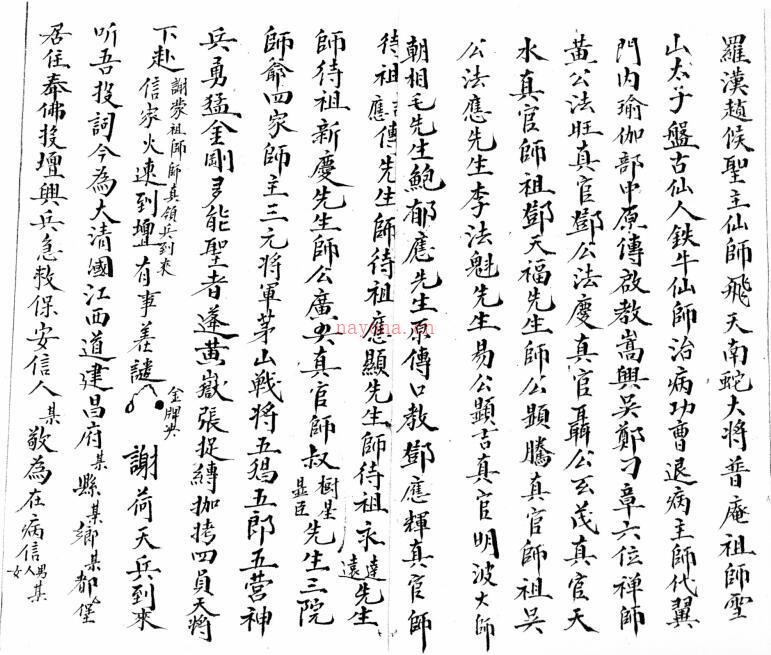 羅漢趙候聖主仙師飛天南蛇大将普庵祖師雪
山太子盤古仙人鉄牛仙師治病功曹退病主師代翼
門内瑜伽部中原傳啟教嵩興吳鄭刁章六位禅師
黄公法旺真官鄧公法慶真官聶公玄茂真官天
水真官師祖鄧天福先生師公顕騰真官師祖吳
公法應先生李法魁先生易公顕吉真官明波大師
朝相毛先生鮑郁應先生原傳口教鄧應輝真官師
待祖應吉傳先生師待祖應顯先生師待祖永達遠先生
師待祖新慶先生師公廣真官師叔樹星显臣先生三院
師爺四家師主三元将軍茅山戦将五猖五郎五营神
兵勇猛金剛多能聖者蓬黄嶽張捉縳枷拷四員天将
下赴信家火速到壇有事差謴謝荷天兵到來
謝蒙祖師師真領兵到來
金牌共
听吾投詞今為大清國江西道建昌府某縣某鄉某都堡
居住奉佛投壇興兵急救保安信人某敬為在病信人男女某
nayona.cn